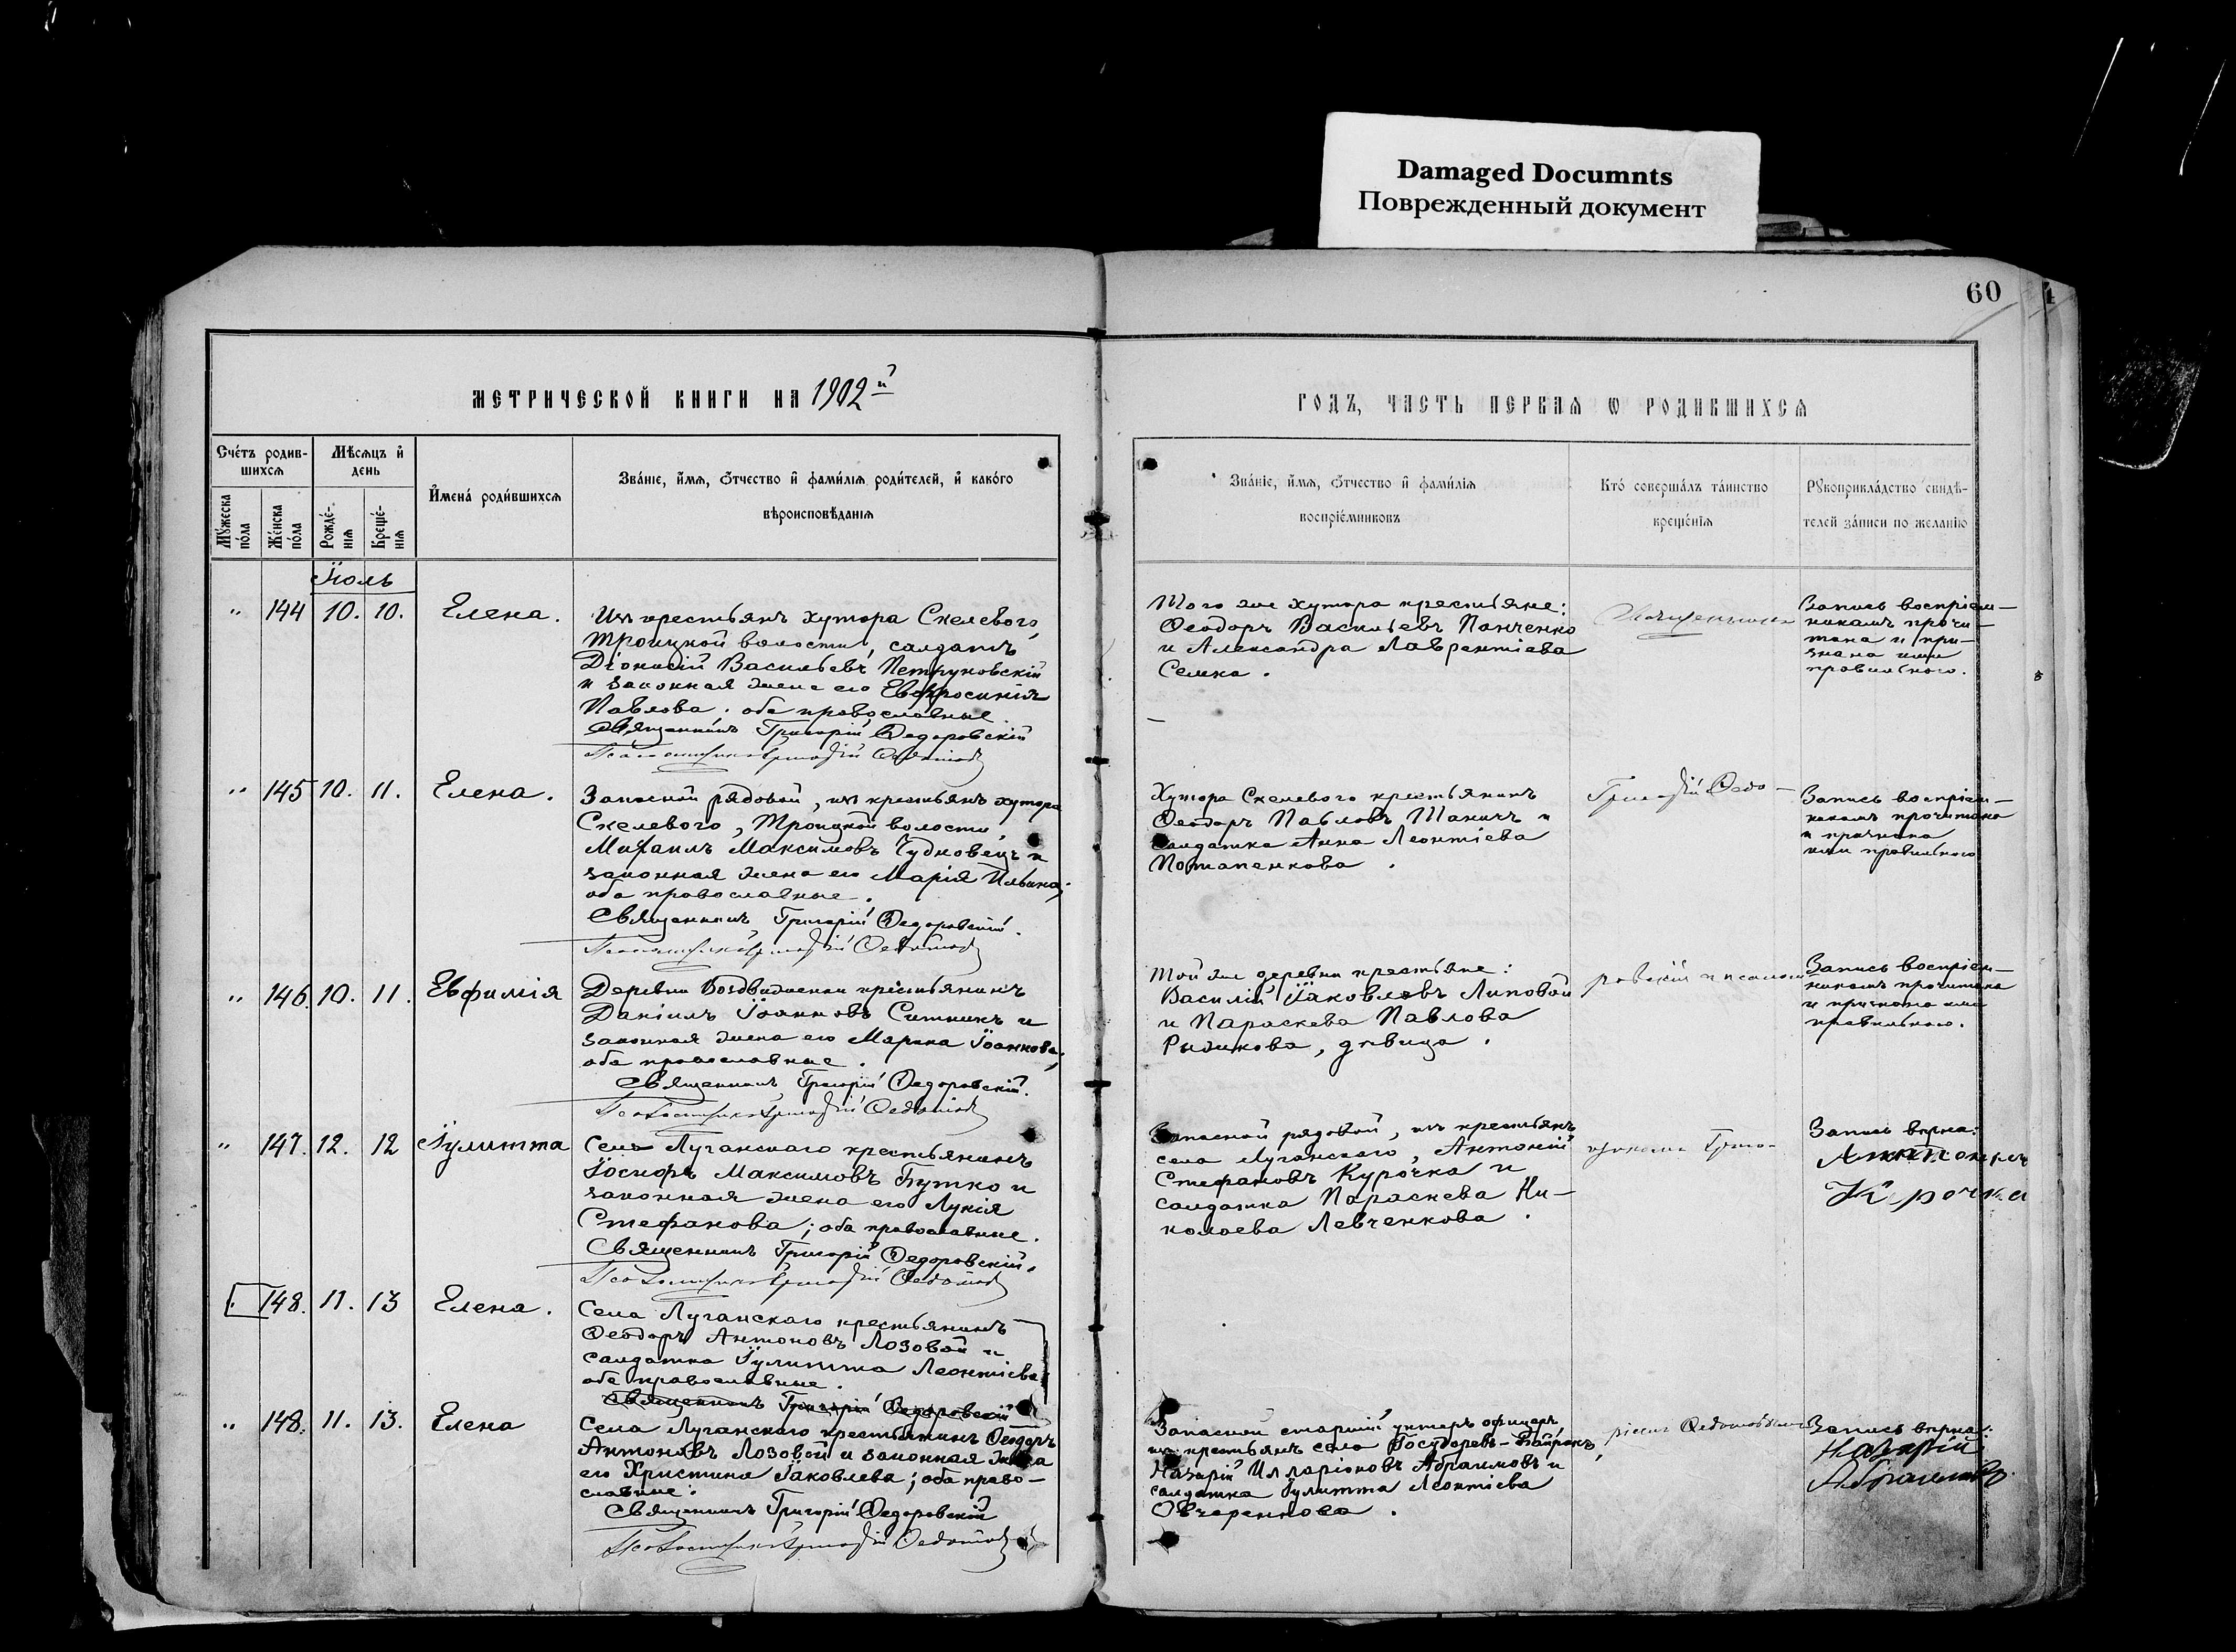 Damaged Documnts
Поврежденный документ
60
МЕТРИЧЕСКОЙ КНИГИ НА 1902й
ГОДЪ, ЧАСТЬ ПЕРВАЯ Ѡ РОДИВШИХСЯ
Счетъ родив-
шихся
Мужеска пола
Женска пола
Мѣсяцъ и
день
Рожде-
нія
Креще-
нія
Имена родившихся
Званіе, имя, отчество и фамилія родителей, и какого
вѣроисповѣданія
Званіе, имя, отчество и фамилія
воспріемниковъ
Кто совершалъ таинство
крещенія
Рукоприкладство свидѣ-
телей записи по желанію
Іюль
" 144 10. 10. Елена.
Изъ крестьянъ хутора Скелевого
Троицкой волости, солдатъ
Діонисій Васильевъ Петруновскій
и законная жена его Евфросинія
Павлова. оба православные.
Священникъ Григорій Ѳедоровскій
Того же хутора крестьяне:
Ѳеодоръ Васильевъ Панченко
и Александра Лаврентіева
Семка.
Запись воспріем-
никамъ прочи-
тана и при-
знана ими
правильною.
" 145 10. 11. Елена.
Запасной рядовой, изъ крестьянъ хутора
Скелевого, Троицкой волости,
Михаилъ Максимовъ Чудновецъ и
законная жена его Марія Ильина;
оба православные.
Священникъ Григорій Ѳедоровскій.
Хутора Скелевого крестьянинъ
Ѳеодоръ Павловъ Таничъ и
солдатка Анна Леонтіева
Потапенкова.
Григорій Ѳедо-
Запись воспріем-
никамъ прочитана
и признана
ими правильною
" 146. 10. 11. Евфимія
Деревни крестьянинъ
Даніилъ Іоанновъ Ситникъ и
законная жена его Марина Іоаннова;
оба православные.
Священникъ Григорій Ѳедоровскій.
Той же деревни крестьяне:
Василій Іаковлевъ Липовой
и Параскева Павлова
Рыжикова, дѣвица.
ровскій и псалом-
Запись воспріем-
никамъ прочитана
и признана ими
правильною.
" 147. 12. 12 Іулитта
Села Луганскаго крестьянинъ
Іосифъ Максимовъ Бутко и
законная жена его Лукія
Стефанова; оба православные.
Священникъ Григорій Ѳедоровскій.
Запасной рядовой, изъ крестьянъ
села Луганскаго, Антоній
Стефановъ Курочка и
солдатка Параскева Ни-
колаева Левченкова.
Запись вѣрна:
Курочка
148. 11. 13 Елена.
Села Луганскаго крестьянинъ
Ѳеодоръ Антоновъ Лозовой и
солдатка Іулитта Леонтіева
оба православные.
Священникъ Григорій Ѳедоровскій
" 148. 11. 13. Елена
Села Луганскаго крестьянинъ Ѳеодоръ
Антоновъ Лозовой и законная жена
его Христина Іаковлева; оба право-
славные.
Священникъ Григорій Ѳедоровскій
Запасной старшій унтеръ офицеръ
изъ крестьянъ села Государевъ-Байракъ,
Назарій Илларіоновъ Абрамовъ и
солдатка Іулитта Леонтіева
Овчаренкова.
ріемъ Ѳедотовымъ
Запись вѣрна:
Назарій
Абрамовъ